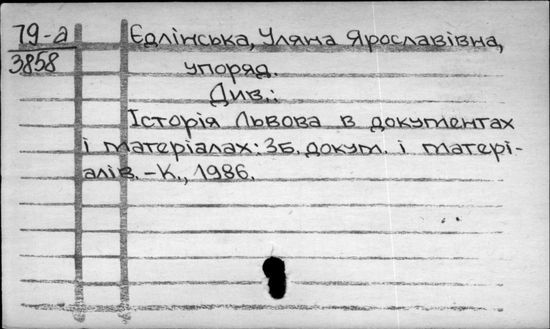 79-а
3858
Єдлінська, Уляна Ярославівна,
упоряд.
Див.:
Історія Львова в документах
і матеріалах: Зб. докум. і матері-
алів. -К., 1986.